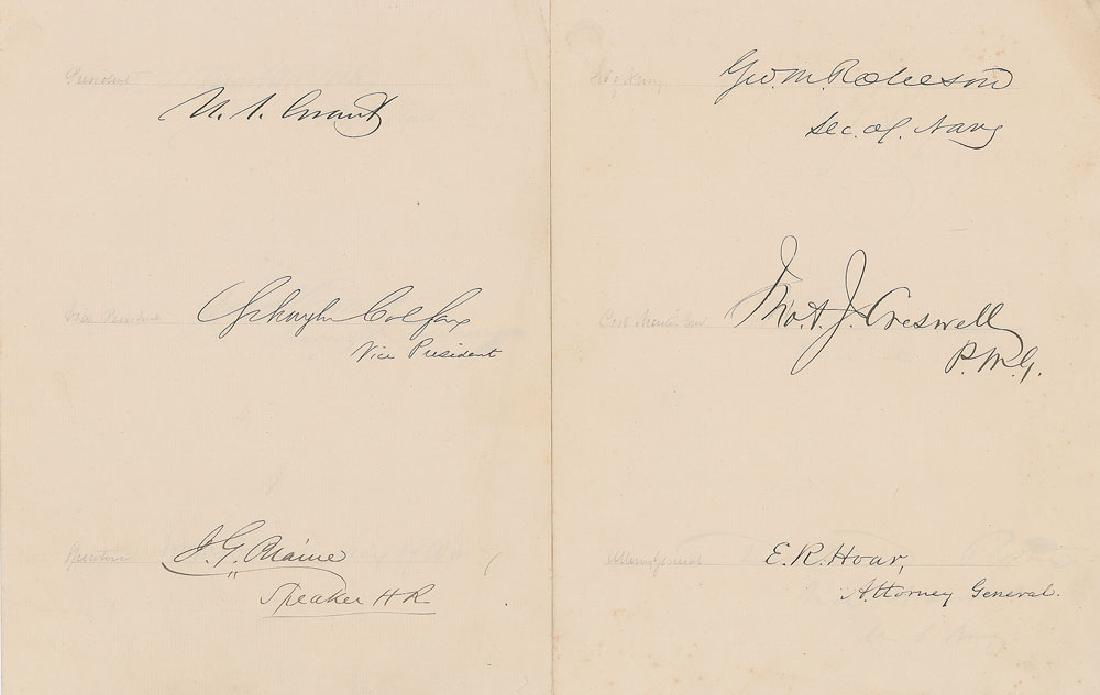 President
U. S. Grant
Vice President
Schuyler Colfax
Vice President
J. G. Blaine
Speaker H R
Geo. M. Robeson
Sec. of. Navy
Jno. A. J. Creswell
P. M. G.
Attorney General
E. R. Hoar,
Attorney General.